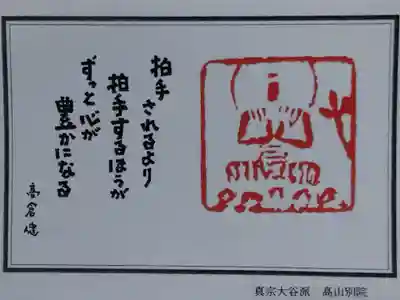 拍手されるより
拍手するほうが
ずっと、心が
豊かになる
高倉健
真宗大谷派 高山別院